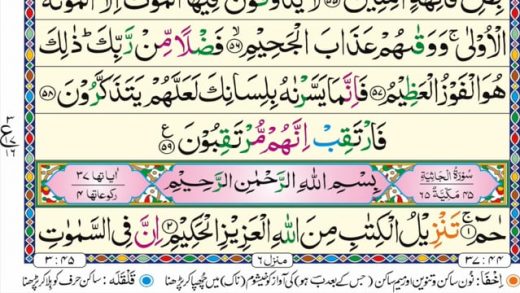 بِكُلِّ فَاكِهَةٍ اٰمِنِيْنَ ۙ﴿۵۵﴾ لَا يَذُوْقُوْنَ فِيْهَا الْمَوْتَ اِلَّا الْمَوْتَةَ
الْاُوْلٰى ۚ وَوَقٰىهُمْ عَذَابَ الْجَحِيْمِ ۙ﴿۵۶﴾ فَضْلًا مِّنْ رَّبِّكَ ؕ ذٰلِكَ
هُوَ الْفَوْزُ الْعَظِيْمُ ﴿۵۷﴾ فَاِنَّمَا يَسَّرْنٰهُ بِلِسَانِكَ لَعَلَّهُمْ يَتَذَكَّرُوْنَ ﴿۵۸﴾
فَارْتَقِبْ اِنَّهُمْ مُّرْتَقِبُوْنَ ﴿۵۹﴾
ع ٣ ١٧ ١٦
سُوْرَةُ الْجَاثِيَةِ ۴۵ مَكِّيَّةٌ ٦۵ بِسْمِ اللّٰهِ الرَّحْمٰنِ الرَّحِيْمِ اٰیاتها ٣٧ رکوعاتها ۴
حٰمٓ ۚ﴿۱﴾ تَنْزِيْلُ الْكِتٰبِ مِنَ اللّٰهِ الْعَزِيْزِ الْحَكِيْمِ ﴿۲﴾ اِنَّ فِى السَّمٰوٰتِ
٣٧:۴۴ منزل ٦ ٣:۴۵
اِخفَا: نُون ساکن و تنوین اور میم ساکن (جس کے بعد ب ہو) کی آواز کو خیشوم (ناک) میں چُھپا کر پڑھنا قَلقَلَه: ساکن حرف کو ہلا کر پڑھنا